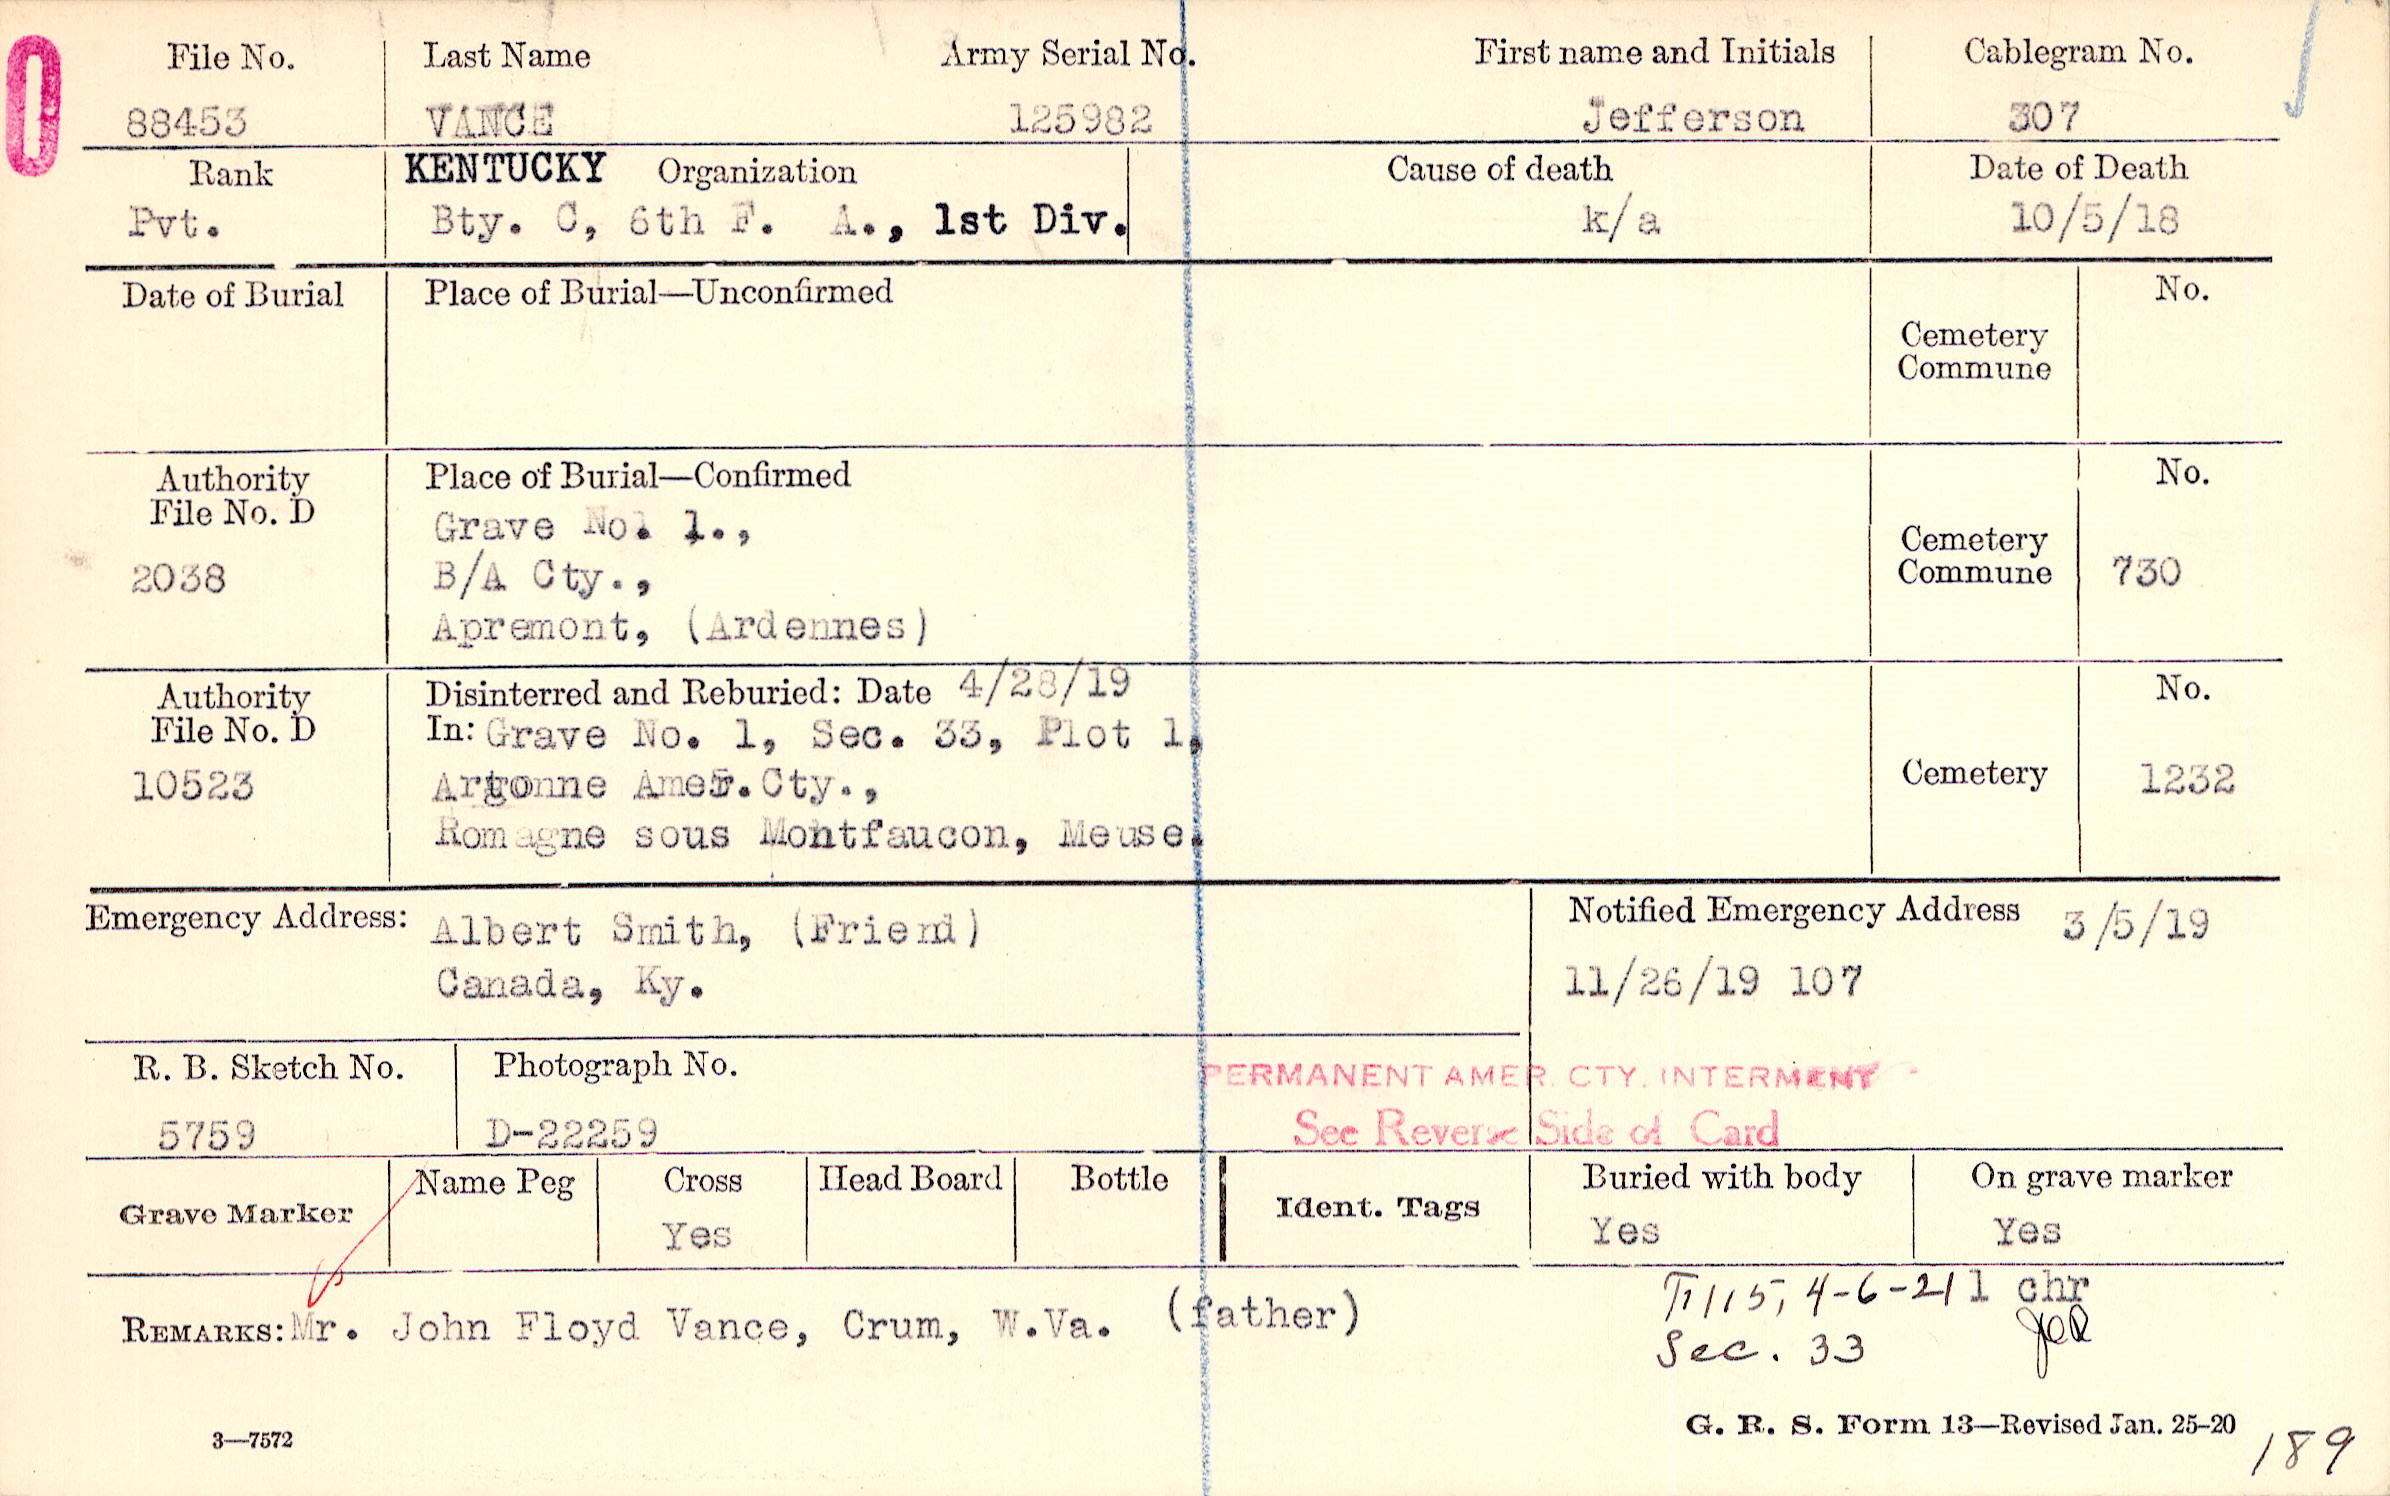 0
File No. Last Name Army Serial No. First name and Initials Cablegram No.
88453 VANCE 125982 Jefferson 307
Rank KENTUCKY Organization Cause of death Date of Death
Pvt. Bty. C, 6th F. A., 1st Div. k/a 10/5/18
Date of Burial Place of Burial—Unconfirmed No.
Cemetery
Commune
Authority Place of Burial—Confirmed No.
File No. D
Grave No. 1.,
Cemetery
2038 B/A Cty., Commune 730
Apremont, (Ardennes)
Authority Disinterred and Reburied: Date 4/28/19 No.
File No. D In: Grave No. 1, Sec. 33, Plot 1,
10523 Argonne Amer. Cty., Cemetery 1232
Romagne sous Montfaucon, Meuse.
Emergency Address: Albert Smith, (Friend) Notified Emergency Address 3/5/19
Canada, Ky. 11/26/19 107
R. B. Sketch No. Photograph No. PERMANENT AMER. CTY. INTERMENT
5759 D-22259 See Reverse Side of Card
Grave Marker Name Peg Cross Head Board Bottle Ident. Tags Buried with body On grave marker
Yes Yes Yes
REMARKS: Mr. John Floyd Vance, Crum, W.Va. (father) 4-6-21 1 chr
Sec. 33
3—7572 G. R. S. Form 13—Revised Jan. 25-20
189